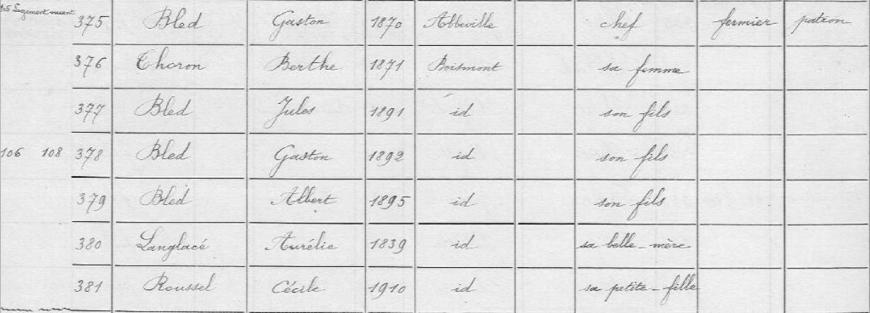 105 logement vacant 375 Bled Gaston 1870 Abbeville chef fermier patron
376 Thoron Berthe 1871 Boismont sa femme
377 Bled Jules 1891 id son fils
106 108 378 Bled Gaston 1892 id son fils
379 Bled Albert 1895 id son fils
380 Langlacé Aurélie 1839 id sa belle-mère
381 Roussel Cécile 1910 id sa petite-fille